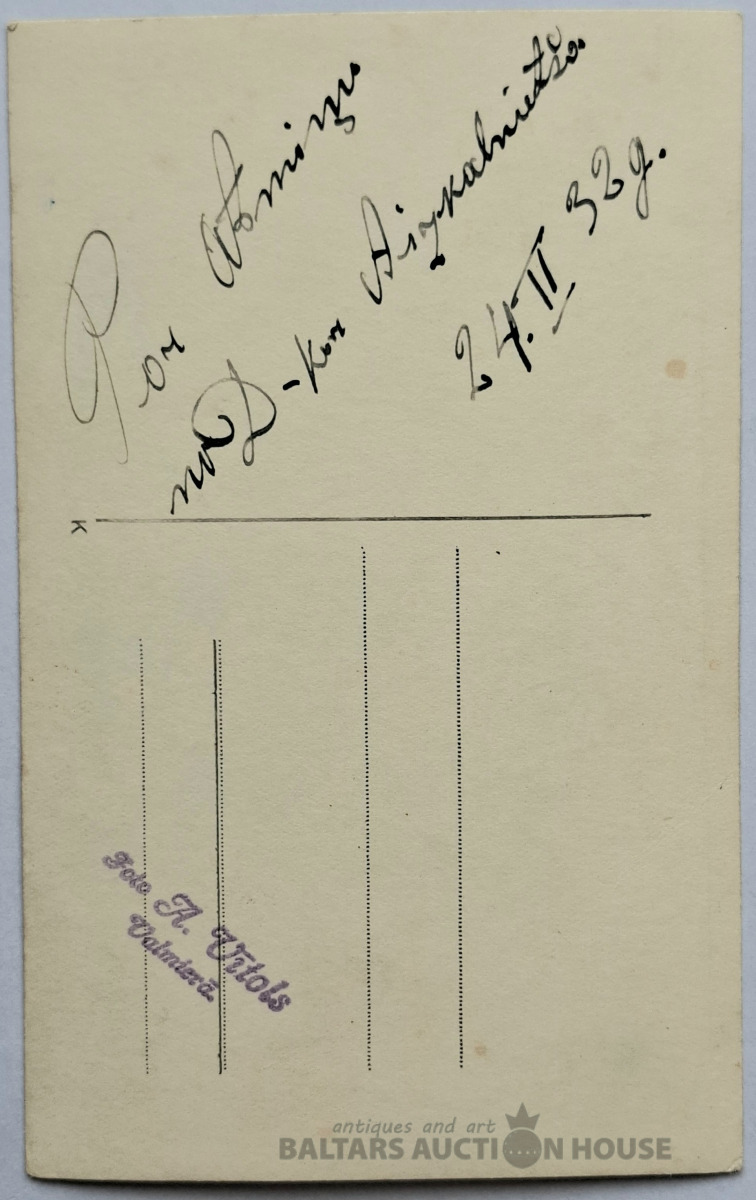 Par atmiņu
no D-km Aizkalnieša.
24. II 32 g.
K
Foto A. Vītols
Valmierā.
antiques and art
BALTARS AUCTION HOUSE